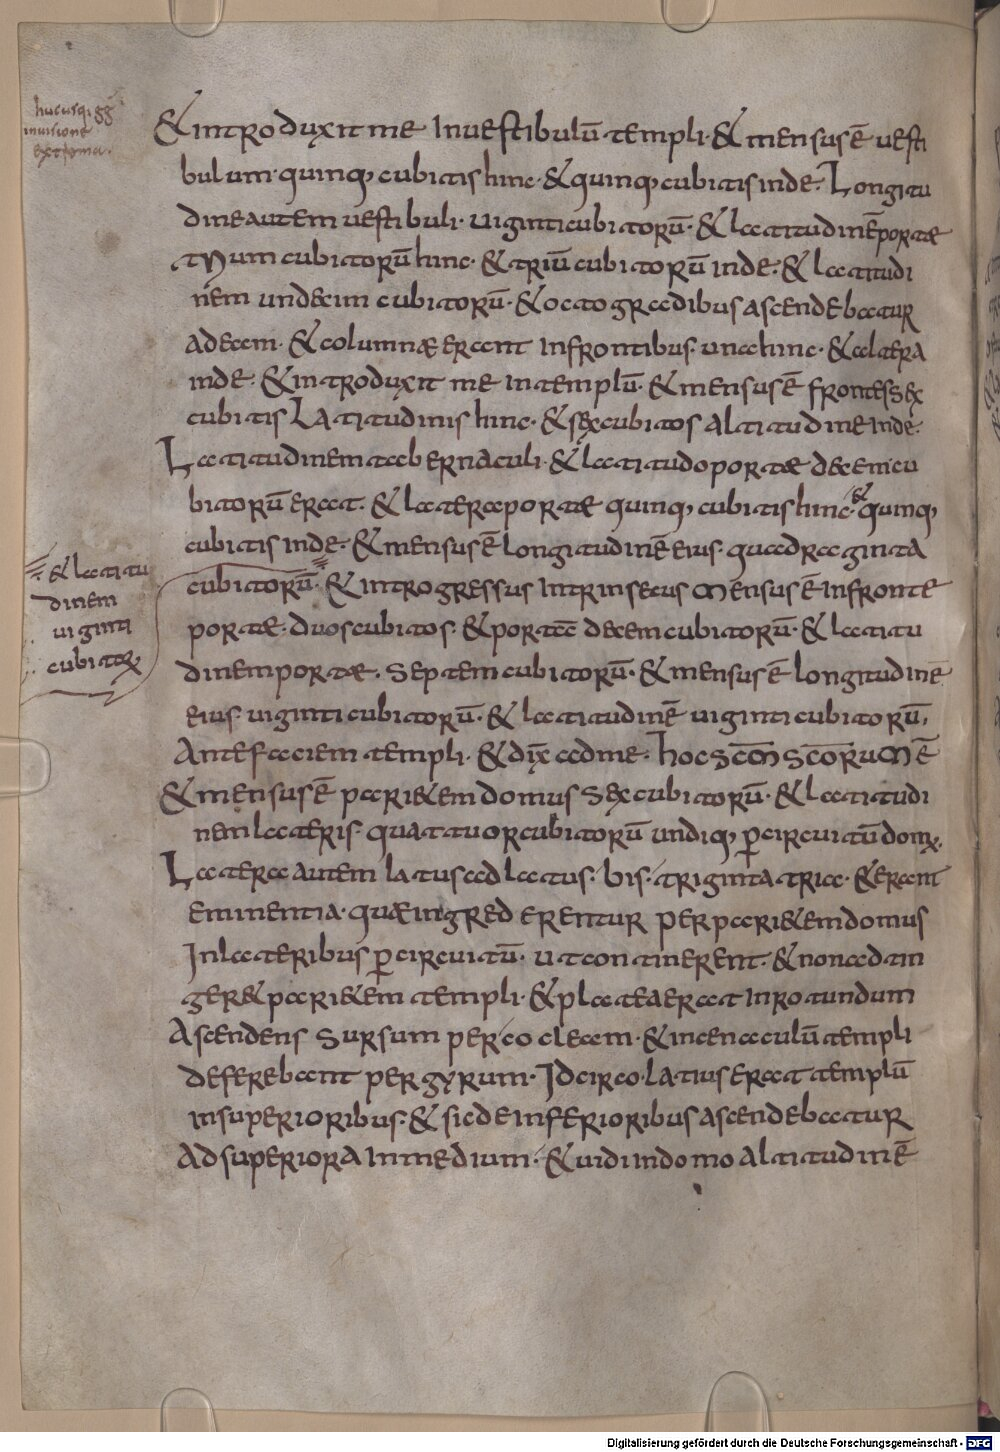 hucusq; gg
in uisione
extrema.
& introduxit me in uestibulū templi. & mensus ē uesti
bulum quinq; cubitis hinc. & quinq; cubitis inde. Longitu
dine autem uestibuli. uiginti cubitorū. & latitudinē portæ
trium cubitorū hinc. & triū cubitorū inde. & latitudi
nem undecim cubitorū. & octo gradibus ascendebatur
ad eam. & columnæ erant in frontibus. una hinc. & altera
inde. & introduxit me in templū. & mensus ē frontes sex
cubitis Latitudinis hinc. & sex cubitos altitudine inde.
Latitudinem tabernaculi. & latitudo portæ decem cu
bitorū erat. & latera portæ quinq; cubitis hinc. & quinq;
cubitis inde. & mensus ē longitudinē eius. quadraginta
cubitorū. & introgressus intrinsecus mensus ē in fronte
portæ. duos cubitos. & portā decem cubitorū. & latitu
dinem portæ. septem cubitorū. & mensus ē longitudinē
eius uiginti cubitorū. & latitudinē uiginti cubitorū.
Ante faciem templi. & dix̄ ad me. hoc sc̄m sc̄orum ē
& mensus ē pari&em domus sex cubitorū. & latitudi
nem lateris. quattuor cubitorū undiq; p circuitū dom;
Latera autem latus ad latus. bis. triginta tria. & erant
eminentia. quæ ingrederentur per pari&em domus
In lateribus p circuitū. ut continerent. & non adtin
ger& pari&em templi. & platea erat in rotundum
Ascendens sursum per cocleam. & in cenaculū templi
deferebant per gyrum. Idcirco latius erat templū
in superioribus. & sic de inferioribus ascendebatur
ad superiora in medium. & uidi in domo altitudinē
& latitu
dinem
uiginti
cubitoꝝ
Digitalisierung gefördert durch die Deutsche Forschungsgemeinschaft - DFG